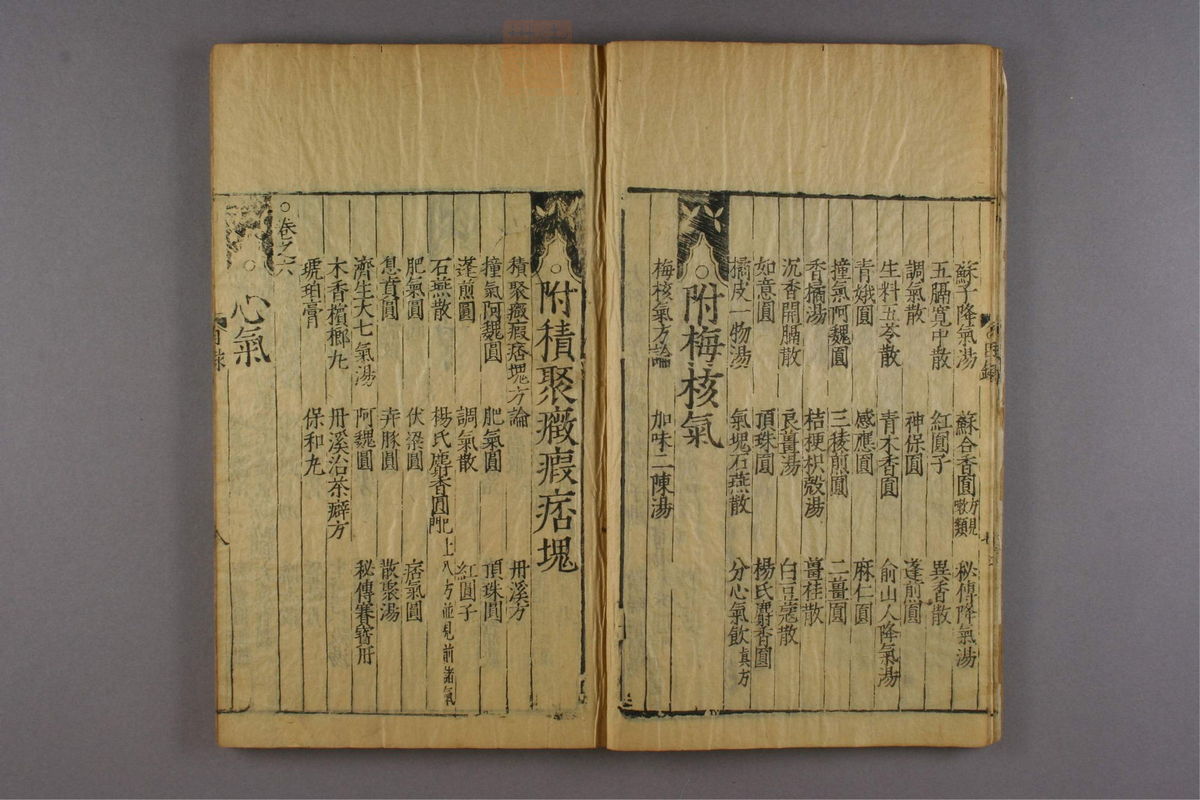 蘇子降氣湯 蘇合香圓 方見嗽類 秘傳降氣湯
五膈寬中散 紅圓子 異香散
調氣散 神保圓 蓬煎圓
生料五苓散 青木香圓 俞山人降氣湯
青娥圓 感應圓 麻仁圓
撞氣阿魏圓 三稜煎圓 二薑圓
香橘湯 桔梗枳殼湯 薑桂散
沉香開膈散 良薑湯 白豆蔻散
如意圓 頂珠圓 楊氏麝香圓
橘皮一物湯 氣塊石燕散 分心氣飲真方
附梅核氣
梅核氣方論 加味二陳湯
附積聚癥瘕痞塊
積聚癥瘕痞塊方論 丹溪方
撞氣阿魏圓 肥氣圓 頂珠圓
蓬煎圓 調氣散 紅圓子
石燕散 楊氏麝香圓 已上八方並見前諸氣門
肥氣圓 伏梁圓 痞氣圓
息賁圓 奔豚圓 散聚湯
濟生大七氣湯 阿魏圓 秘傳賽寶丹
木香檳榔丸 丹溪治茶癖方
琥珀膏 保和丸
卷之六
心氣
目錄 八